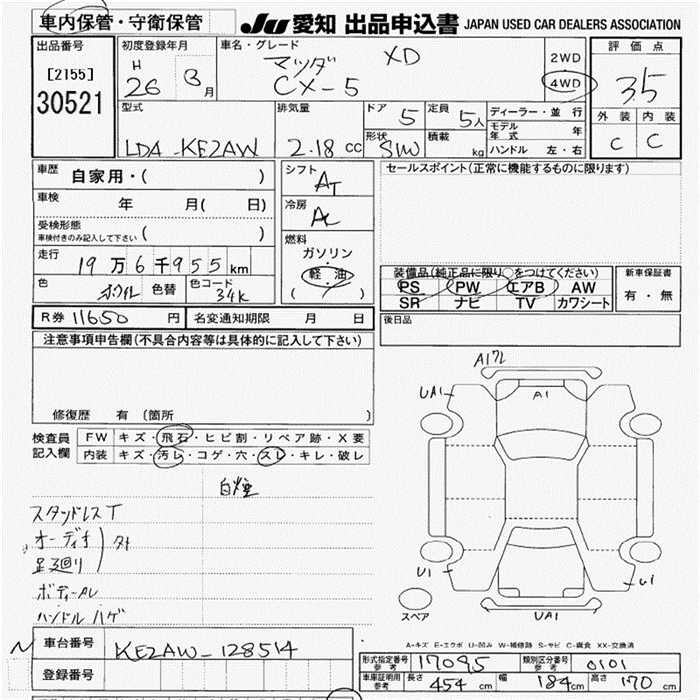 車内保管・守衛保管
JU 愛知 出品申込書 JAPAN USED CAR DEALERS ASSOCIATION
出品番号
[2155]
30521
初度登録年月
H
26 年 3 月
車名・グレード
マツダ XD
CX-5
2WD
4WD
評価点
3.5
外装 内装
C C
型式
LDA-KE2AW
排気量
2.18 cc
ドア 5
定員 5人
形状 SW
積載 kg
ディーラー・並行
モデル年式 年
ハンドル 左・右
車歴
自家用・( )
車検
年 月( 日)
受検形態
車検付きのみ記入して下さい ( )
走行
19万6千955km
色
ホワイト 色替
色コード
34K
シフト
AT
冷房
AC
燃料
ガソリン
軽油
( / )
セールスポイント(正常に機能するものに限ります)
装備品(純正品に限り○をつけてください)
PS PW エアB AW
SR ナビ TV カワシート
新車保証書
有・無
後日品
R券 11650 円 名変通知期限 月 日
注意事項申告欄(不具合内容等は具体的に記入して下さい)
修復歴 有 (箇所 )
検査員記入欄
FW キズ・飛石・ヒビ割・リペア跡・X要
内装 キズ・汚レ・コゲ・穴・スレ・キレ・破レ
白煙
スタッドレスT
オーディオ
足廻り
外
ハンドルハゲ
A17L
UA1
A1
U1
U1
UA1
スペア
A=キズ E=エクボ U=凹み W=補修跡 S=サビ C=腐食 XX=交換済
車台番号
KE2AW-128514
登録番号
形式指定番号 参考 17095
類別区分番号 参考 0101
車庫証明用 参考 長さ 454 cm 幅 184 cm 高さ 170 cm